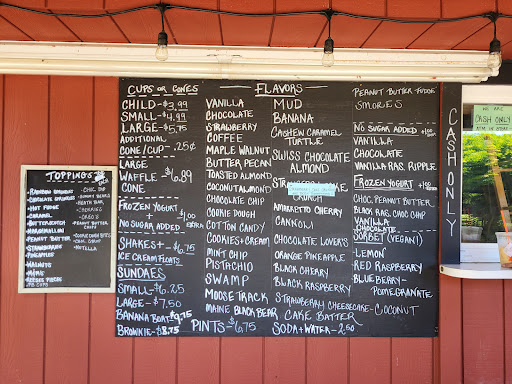 CUPS OR CONES
CHILD-$3.99
SMALL-$4.99
LARGE-$5.75
ADDITIONAL
CONE/CUP- .25¢
LARGE
WAFFLE $6.89
CONE
FROZEN YOGURT
+ $1.00
NO SUGAR ADDED EXTRA
SHAKES+- $6.75
ICE CREAM FLOATS
SUNDAES
SMALL-$6.25
LARGE-$7.50
BANANA BOAT-$9.75
BROWNIE-$8.75
FLAVORS
VANILLA
CHOCOLATE
STRAWBERRY
COFFEE
MAPLE WALNUT
BUTTER PECAN
TOASTED ALMOND
COCONUT ALMOND
CHOCOLATE CHIP
COOKIE DOUGH
COTTON CANDY
COOKIES+CREAM
MINT CHIP
PISTACHIO
SWAMP
MOOSE TRACK
MAINE BLACK BEAR
PINTS-$6.75
MUD
BANANA
CASHEW CARAMEL
TURTLE
SWISS CHOCOLATE
ALMOND
CRUNCH
AMARETTO CHERRY
CANNOLI
CHOCOLATE LOVER'S
ORANGE PINEAPPLE
BLACK CHERRY
BLACK RASPBERRY
STRAWBERRY CHEESECAKE
CAKE BATTER
SODA+WATER-2.50
PEANUT BUTTER FUDGE
SMORES
NO SUGAR ADDED +1.00
VANILLA
CHOCOLATE
VANILLA RAS. RIPPLE
FROZEN YOGURT +1.00
CHOC. PEANUT BUTTER
BLACK RAS. CHOC CHIP
VANILLA
CHOCOLATE
SORBET (VEGAN)
-LEMON
-RED RASPBERRY
-BLUEBERRY-
POMEGRANATE
-COCONUT
CASH ONLY
WE ARE
CASH ONLY
TOPPINGS
-RAINBOW SPRINKLES
-CHOCOLATE SPRINKLES
-HOT FUDGE
-CARAMEL
-BUTTERSCOTCH
-MARSHMALLOW
-PEANUT BUTTER
-STRAWBERRIES
-PINEAPPLE
-WALNUTS
-M+MS
-REESES PIECES
-PB CUPS
-CHOC. CHIP
-GUMMY BEARS
-HEATH BAR
-CHERRIES
-OREO'S
-PEANUT BUTTER
CHIPS
-COOKIE DOUGH BITES
-NUTELLA